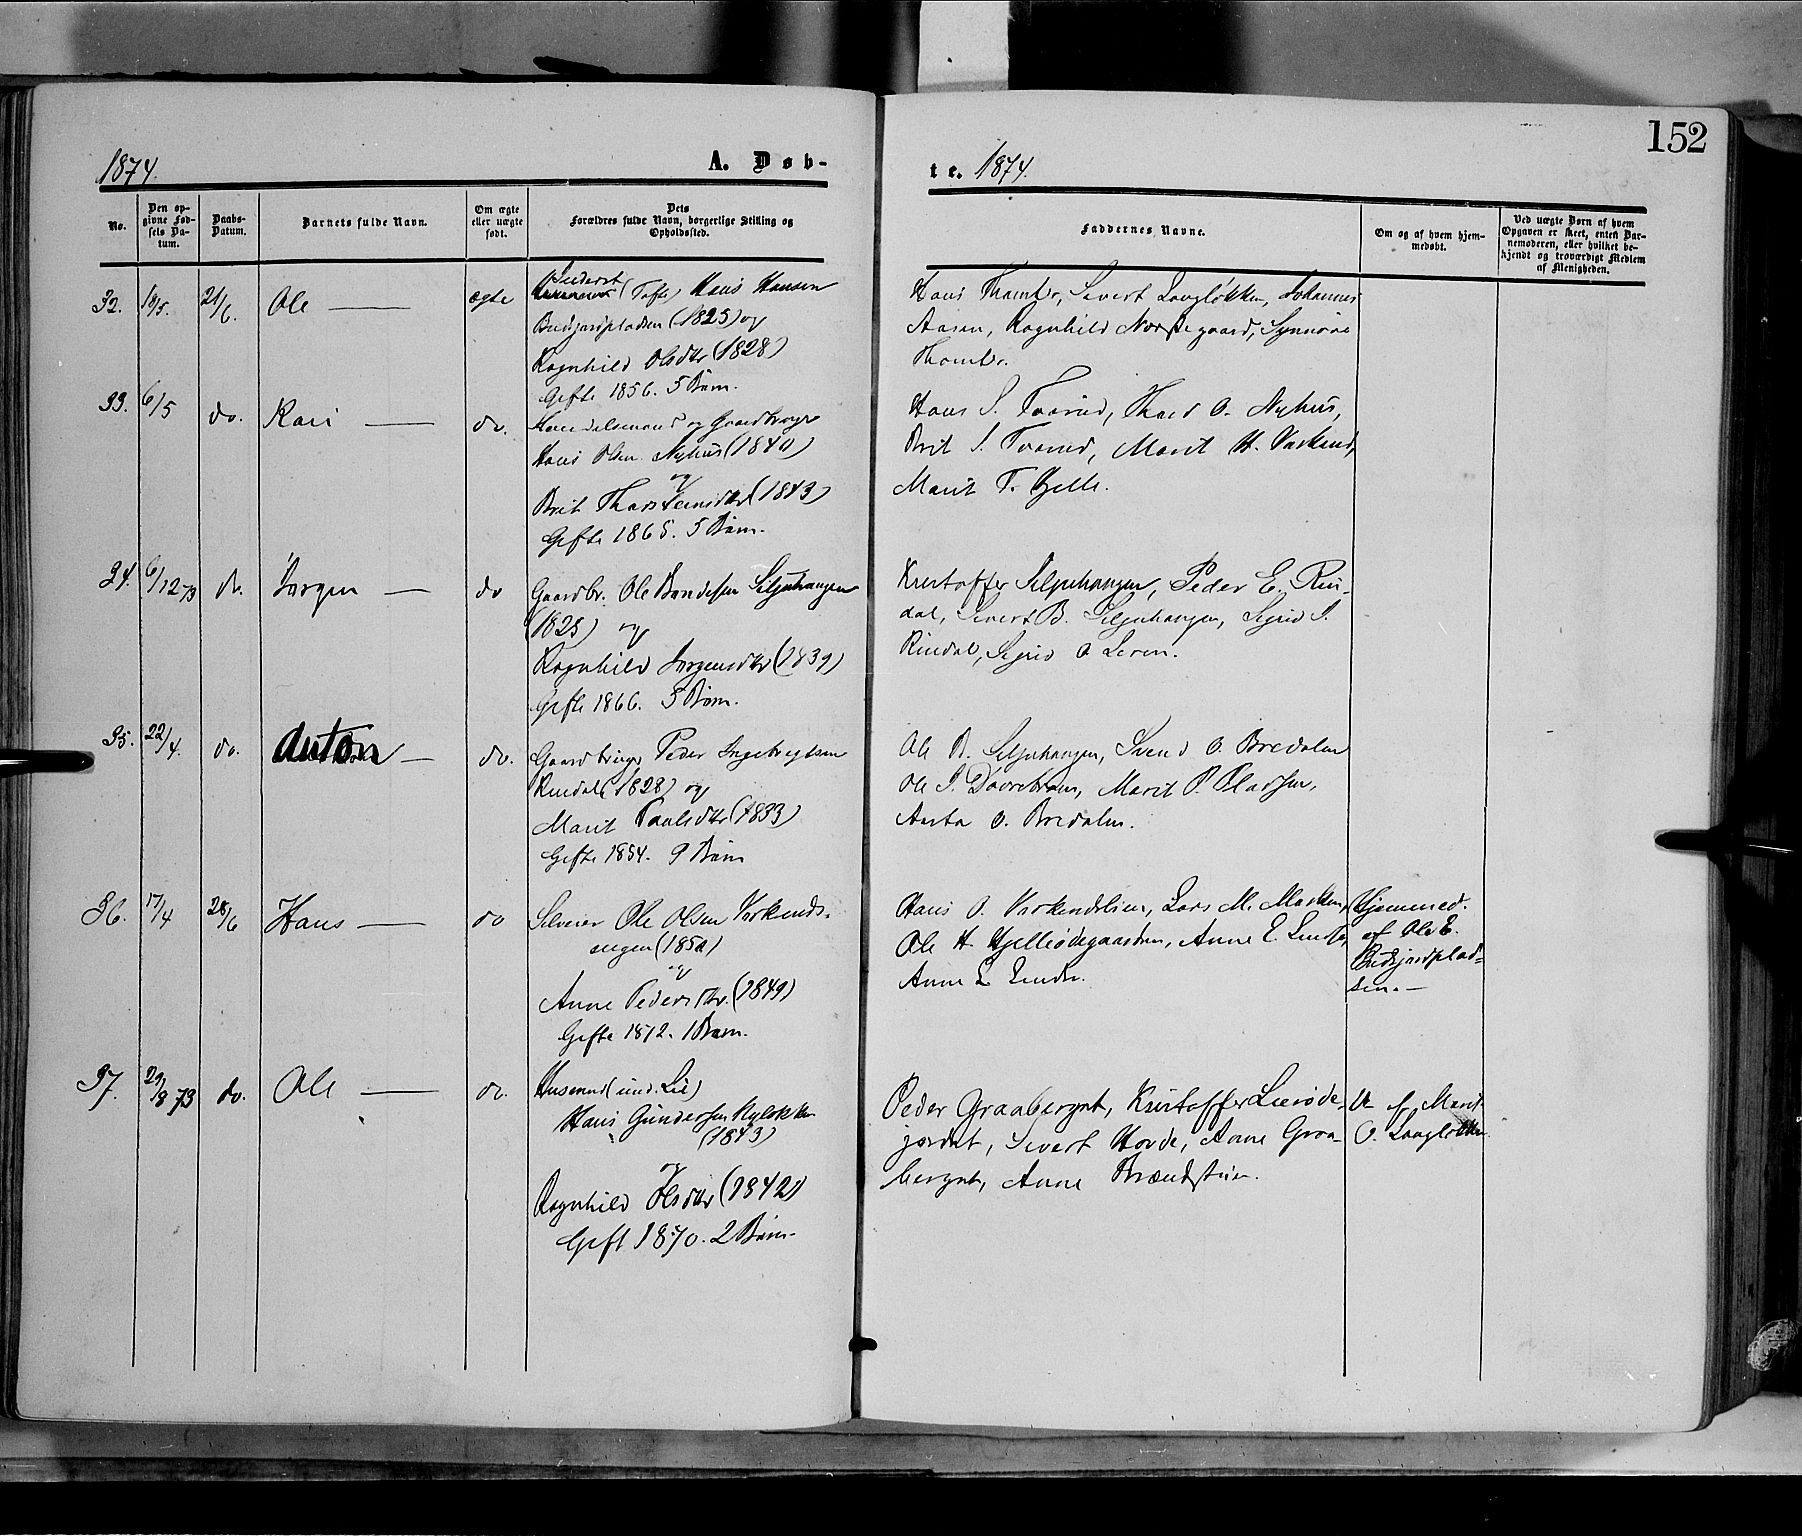 152
1874.
A. Døb-
te. 1874.
No.
Den op-
givne Fød-
sels Da-
tum.
Daabs-
Datum.
Barnets fulde Navn.
Om ægte
eller uægte
født.
Dets
Forældres fulde Navn, borgerlige Stilling og
Opholdssted.
Faddernes Navne.
Om og af hvem hjem-
medøbt.
Ved uægte Børn af hvem
Opgaven er skeet, enten Bar-
nemoderen, eller hvilket be-
kjendt og troværdigt Medlem
af Menigheden.
32. 18/5. 21/6. Ole ægte
(Tofte) Hans Hansen
Budsjordpladsen (1825) og
Ragnhild Olsdtr (1828)
Gifte 1856. 5 Børn.
Hans Thomtr, Sivert Longløkken, Johannes
Aasen, Ragnhild Norstegaard, Synnøve
Thomtr.
33. 6/5 do. Kari do.
Handelsmand og Gaardbruger
Hans Olsen Nyhus (1840)
og
Brit Thorsteinsdtr (1843)
Gifte 1865. 5 Børn.
Hans S. Tvorud, Thord O. Nyhus,
Brit S. Tvorud, Marit H. Vaskend,
Marit T. Hjelle.
34. 6/12 73 do. Jørgen do
Gaardbr. Ole Bendesen Seljuhaugen
(1825) og
Ragnhild Jørgensdtr (1839)
Gifte 1866. 5 Børn.
Kristoffer Seljuhaugen, Peder E. Rin-
dal, Sivert B. Seljuhaugen, Sigrid S.
Rindal, Sigrid O Loren.
35. 22/4. do. Anton do.
Gaardbruger Peder Ingebregtsen
Rindal (1828) og
Marit Paulsdtr (1833)
Gifte 1854. 9 Børn
Ole B. Seljuhaugen, Svend O. Bredalen
Ole S. Dovrebroen, Marit P. Pladsen,
Aasta O. Bredalen.
36. 17/4 28/6 Hans do
Selveier Ole Olsen Vorkends-
engen (1850)
og
Anne Pedersdtr. (1849)
Gifte 1872. 1 Barn.
Hans O. Vorkendslien, Lars M. Morken,
Ole H. Hjelleødegaarden, Anne E.
Anne E
Hjemmed.
af Ole E.
Budsjordplad-
sen.
37. 29/8 73 do. Ole do.
Husmand (und. Lie)
Hans Gundersen Nyløkken
(1843)
og
Ragnhild Olsdtr (1842)
Gift 1870. 2 Børn.
Peder Graaberget, Kristoffer Lieøde-
jordet, Sivert Hovde, Anne Graa-
berget, Anne Brændstuen.
do. af Marit
O. Longløkken